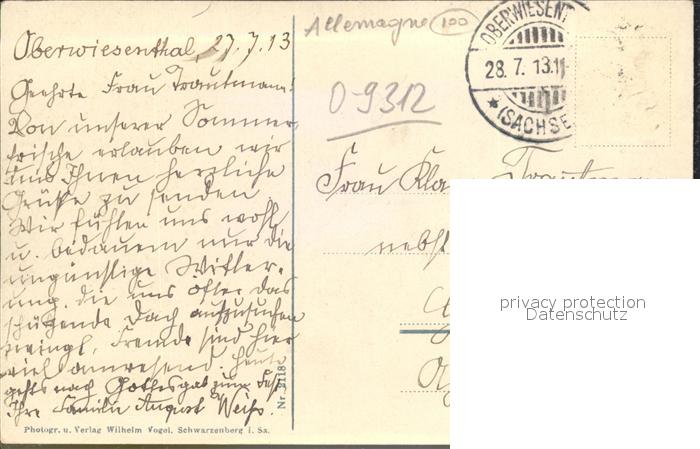 Oberwiesenthal, 27.7.13
Geehrte Frau Trautmann!
Von unserer Sommer-
frische erlauben wir
uns Ihnen herzliche
Grüße zu senden
Wir fühlen uns wohl
u. bedauern nur die
ungünstige Witter-
ung die uns öfter das
schützende Dach aufzusuchen
zwingt. Fremde sind hier
viel anwesend. Heute
gehts nach Gottesgab zum Fest
Ihre Familie August Weiß.
Photogr. u. Verlag Wilhelm Vogel, Schwarzenberg i. Sa.
Nr. 9118
Allemagne 100
0-9312
OBERWIESENT
28.7.13.11
(SACHSE
Frau Kla
nebst
privacy protection
Datenschutz